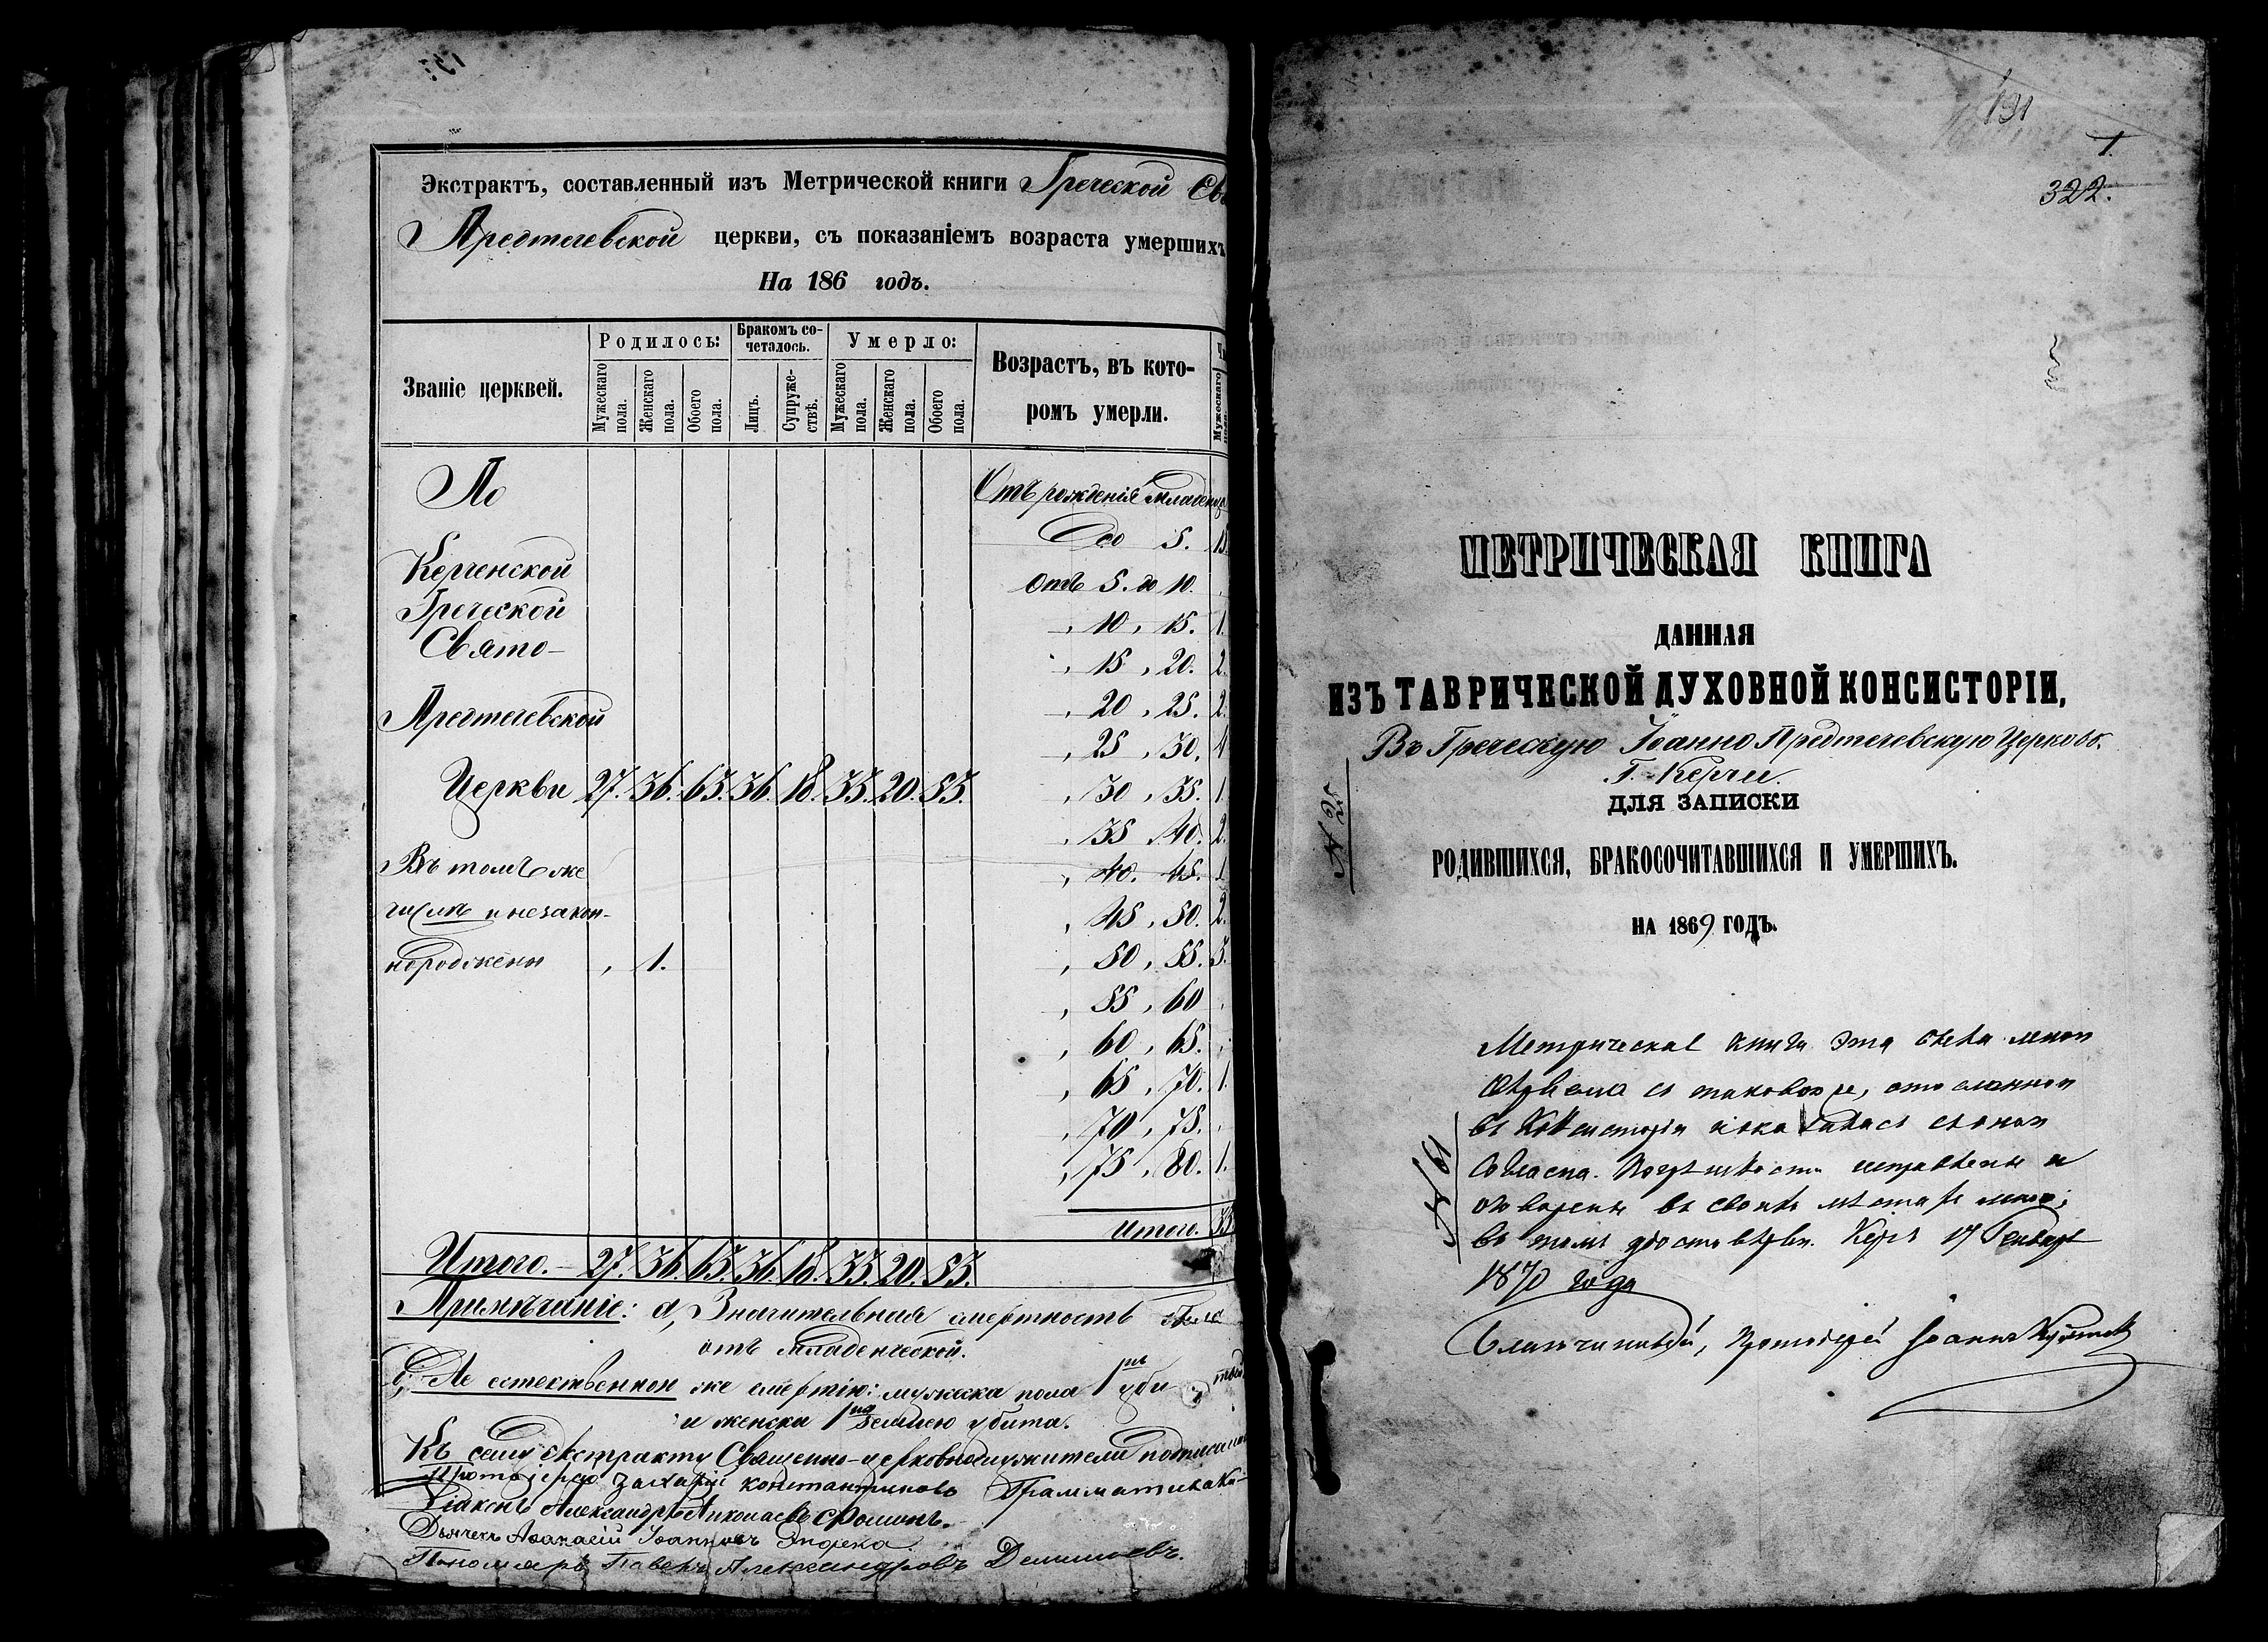 Экстрактъ, составленный изъ Метрической книги Греческой Св
Предтечевской церкви, съ показаніемъ возраста умершихъ
На 186 годъ.
Званіе церквей.
Родилось:
Бракомъ со-
четалось.
Умерло:
Возрастъ, въ кото-
ромъ умерли.
Мужескаго пола.
Женскаго пола.
Обоего пола.
Лицъ.
Супруже-
ствъ.
Мужескаго пола.
Женскаго пола.
Обоего пола.
Мужескаго
По
Керченской
Греческой
Свято-
Предтечевской
Церкви 27. 36. 63. 36. 18. 33. 20. 53.
Въ томъ же
числѣ и незакон-
норожденн , 1.
Отъ рожденія младен
До 5. 15.
Отъ 5. до 10.
, 10 , 15. 1.
, 15 , 20. 2.
, 20 , 25. 2.
, 25 , 30. 4
, 30 , 35. 1.
, 35 , 40. 2.
, 40. 45. 1
, 45 , 50. 2.
, 50 , 55. 3.
, 55 , 60
, 60 , 65.
, 65 , 70. 1.
, 70 , 75.
, 75 , 80. 1.
Итого. 33.
Итого.- 27. 36. 63. 36. 18. 33. 20. 53.
Примѣчаніе: а, Значительная смертность
отъ младенческой.
Не естественною же смертію: мужеска пола 1
и женска 1 убита.
Къ сему экстракту Священно-церковнослужители
Протоіерей Захарій Константиновъ
Діаконъ Александръ Николаевъ
Дьячекъ Афанасій Іоанновъ
Пономарь Павелъ Александровъ
131
1.
322.
МЕТРИЧЕСКАЯ КНИГА
ДАННАЯ
ИЗЪ ТАВРИЧЕСКОЙ ДУХОВНОЙ КОНСИСТОРІИ,
Въ Греческую Іоанно Предтечевскую Церковь.
Г. Керчи.
ДЛЯ ЗАПИСКИ
№ 25
РОДИВШИХСЯ, БРАКОСОЧИТАВШИХСЯ И УМЕРШИХЪ.
НА 1869 ГОДЪ.
Метрическая книга эта была мною
свѣрена съ таковою же, отосланною
въ Консисторію и оказалась съ оною
согласна. Погрѣшности исправлены и
оговорены въ своихъ мѣстахъ мною;
въ томъ удостовѣряю. Керчь 17 Генваря
1870 года
№ 61
Благочинный, Протоіерей Іоаннъ